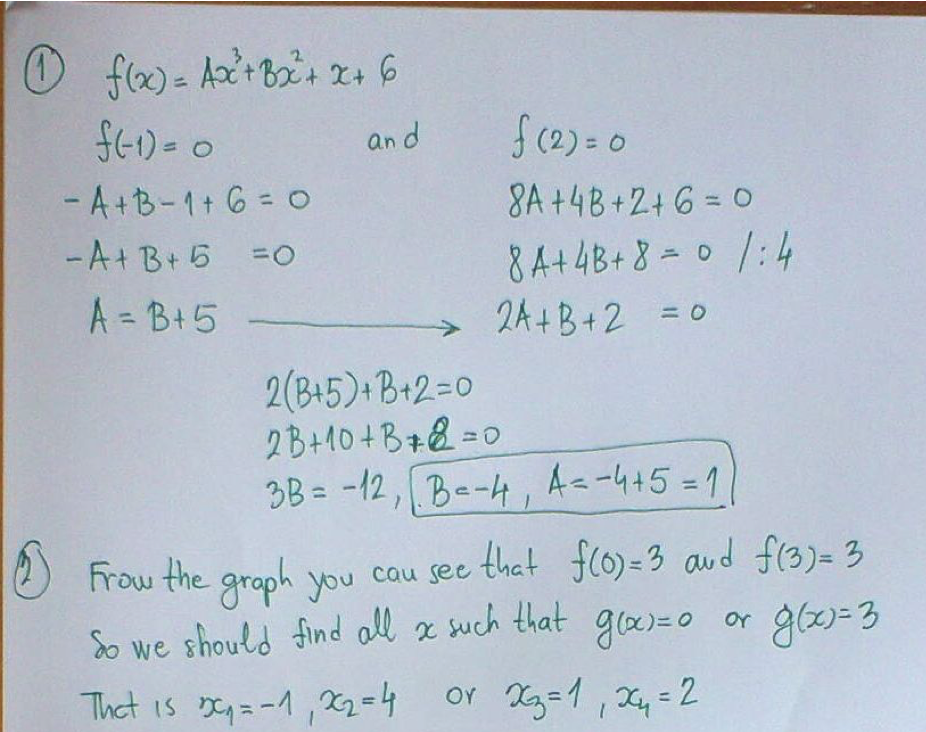 ① f(x) = Ax³ + Bx² + x + 6
f(-1) = 0 and f(2) = 0
-A + B - 1 + 6 = 0 8A + 4B + 2 + 6 = 0
-A + B + 5 = 0 8A + 4B + 8 = 0 /:4
A = B + 5 → 2A + B + 2 = 0
2(B+5) + B + 2 = 0
2B + 10 + B + 2 = 0
3B = -12, B = -4, A = -4 + 5 = 1
② From the graph you can see that f(0) = 3 and f(3) = 3
So we should find all x such that g(x) = 0 or g(x) = 3
That is x₁ = -1, x₂ = 4 or x₃ = 1, x₄ = 2